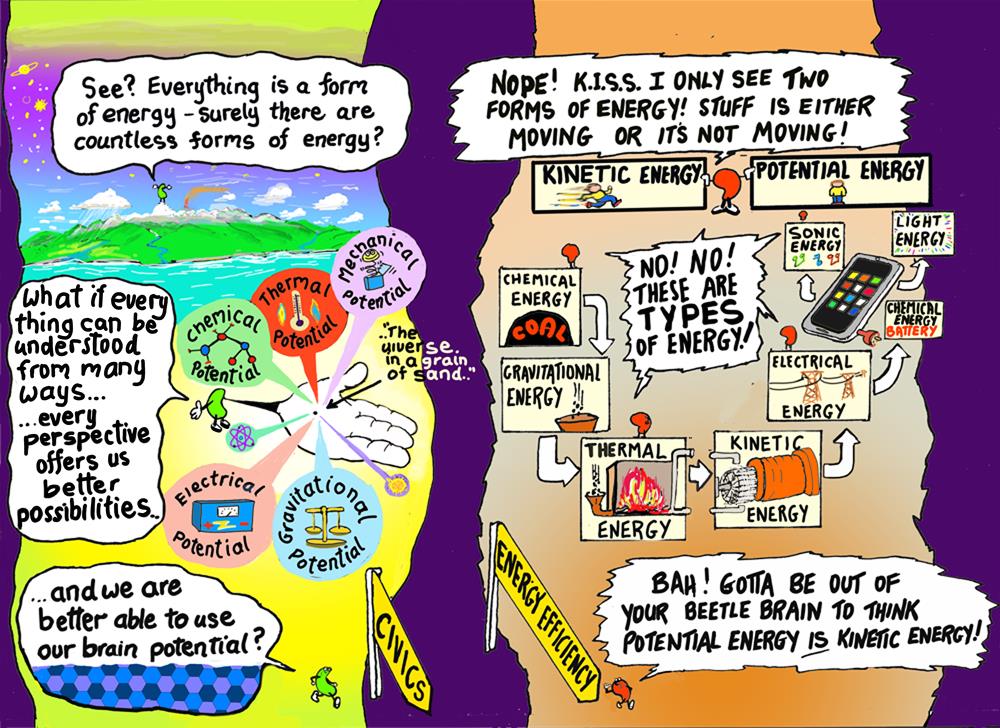 See? Everything is a form
of energy - surely there are
countless forms of energy?
What if every
thing can be
understood
from many
ways...
...every
perspective
offers us
better
possibilities..
Mechanical
Potential
Thermal
Potential
Chemical
Potential
.."The
uiverse.
in a grain
of sand.."
Electrical
Potential
Gravitational
Potential
...and we are
better able to use
our brain potential?
CIVICS
NOPE! K.I.S.S. I ONLY SEE TWO
FORMS OF ENERGY! STUFF IS EITHER
MOVING OR IT'S NOT MOVING!
KINETIC ENERGY
POTENTIAL ENERGY
NO! NO!
THESE ARE
TYPES
OF ENERGY!
CHEMICAL
ENERGY
COAL
GRAVITATIONAL
ENERGY
THERMAL
ENERGY
KINETIC
ENERGY
ELECTRICAL
ENERGY
CHEMICAL
ENERGY
BATTERY
SONIC
ENERGY
LIGHT
ENERGY
ENERGY EFFICIENCY
BAH! GOTTA BE OUT OF
YOUR BEETLE BRAIN TO THINK
POTENTIAL ENERGY IS KINETIC ENERGY!